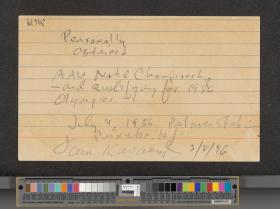 Personally
Obtained
AAU Nat'l Championship
- and qualifying for 1956
Olympics
July 4, 1956 Palmer Stadium
Princeton NJ
3/8/96